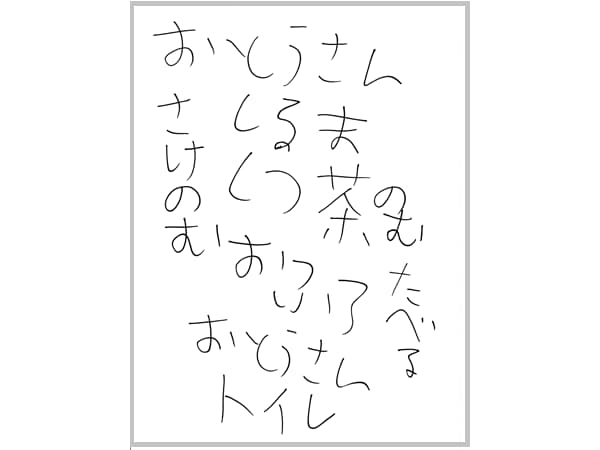 おいとうさん
さけのむい
くるま
くつ
茶のむ
たべる
おいしい
おいとうさん
トイレ